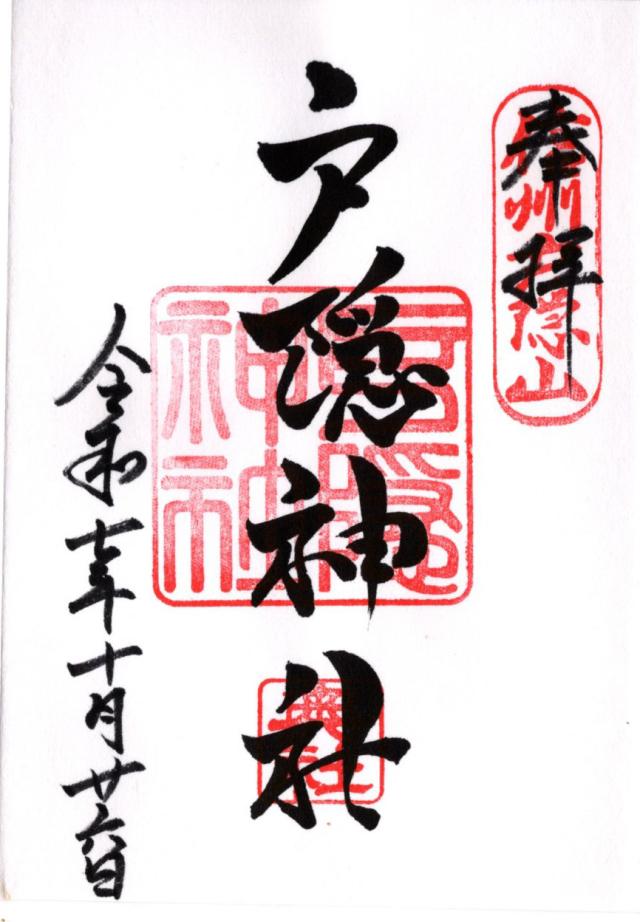 奉拝
信州戸隠山
戸隠神社
戸隠神社
令和七年十月廿六日